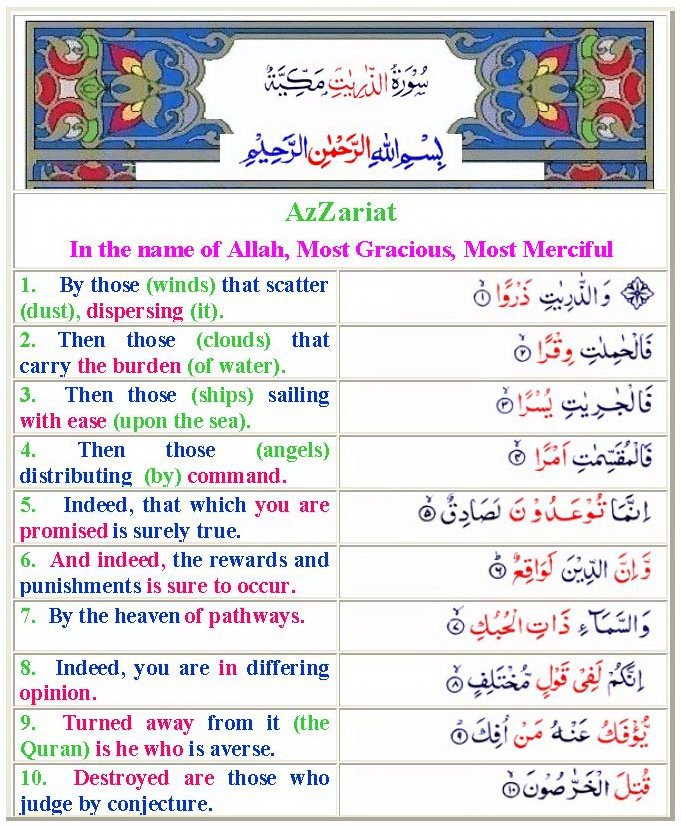 سُوْرَةُ الذّٰرِيٰتِ مَكِّيَّةٌ
بِسْمِ اللّٰهِ الرَّحْمٰنِ الرَّحِيْمِ
AzZariat
In the name of Allah, Most Gracious, Most Merciful
1. By those (winds) that scatter
(dust), dispersing (it).
وَالذّٰرِيٰتِ ذَرْوًا ۙ‏﴿۱﴾
2. Then those (clouds) that
carry the burden (of water).
فَالْحٰمِلٰتِ وِقْرًا ۙ‏﴿۲﴾
3. Then those (ships) sailing
with ease (upon the sea).
فَالْجٰرِيٰتِ يُسْرًا ۙ‏﴿۳﴾
4. Then those (angels)
distributing (by) command.
فَالْمُقَسِّمٰتِ اَمْرًا ۙ‏﴿۴﴾
5. Indeed, that which you are
promised is surely true.
اِنَّمَا تُوْعَدُوْنَ لَصَادِقٌ ۙ‏﴿۵﴾
6. And indeed, the rewards and
punishments is sure to occur.
وَّاِنَّ الدِّيْنَ لَوَاقِعٌ ؕ‏﴿۶﴾
7. By the heaven of pathways.
وَالسَّمَآءِ ذَاتِ الْحُبُكِ ۙ‏﴿۷﴾
8. Indeed, you are in differing
opinion.
اِنَّكُمْ لَفِىْ قَوْلٍ مُّخْتَلِفٍ ۙ‏﴿۸﴾
9. Turned away from it (the
Quran) is he who is averse.
يُّؤْفَكُ عَنْهُ مَنْ اُفِكَ ؕ‏﴿۹﴾
10. Destroyed are those who
judge by conjecture.
قُتِلَ الْخَرّٰصُوْنَ ۙ‏﴿۱۰﴾